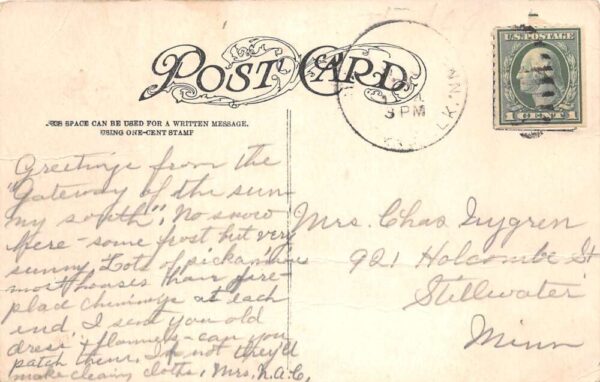 POST CARD
SPACE CAN BE USED FOR A WRITTEN MESSAGE.
USING ONE-CENT STAMP
U.S. POSTAGE
1 CENT 1
3 PM
Greetings from the
"Gateway of the sun
my south". No snow
here - some frost, but very
sunny. Lots of
most houses have fire-
place chimneys at each
end. I sent you old
dress + flannels - can you
patch them. If not they'd
make cleaning cloths. Mrs. N.A.C.
Mrs. Chas
921 Holcombe St
Stillwater
Minn